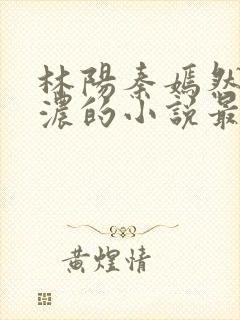 林陽秦嫣然
濃的小説最
黄煌情